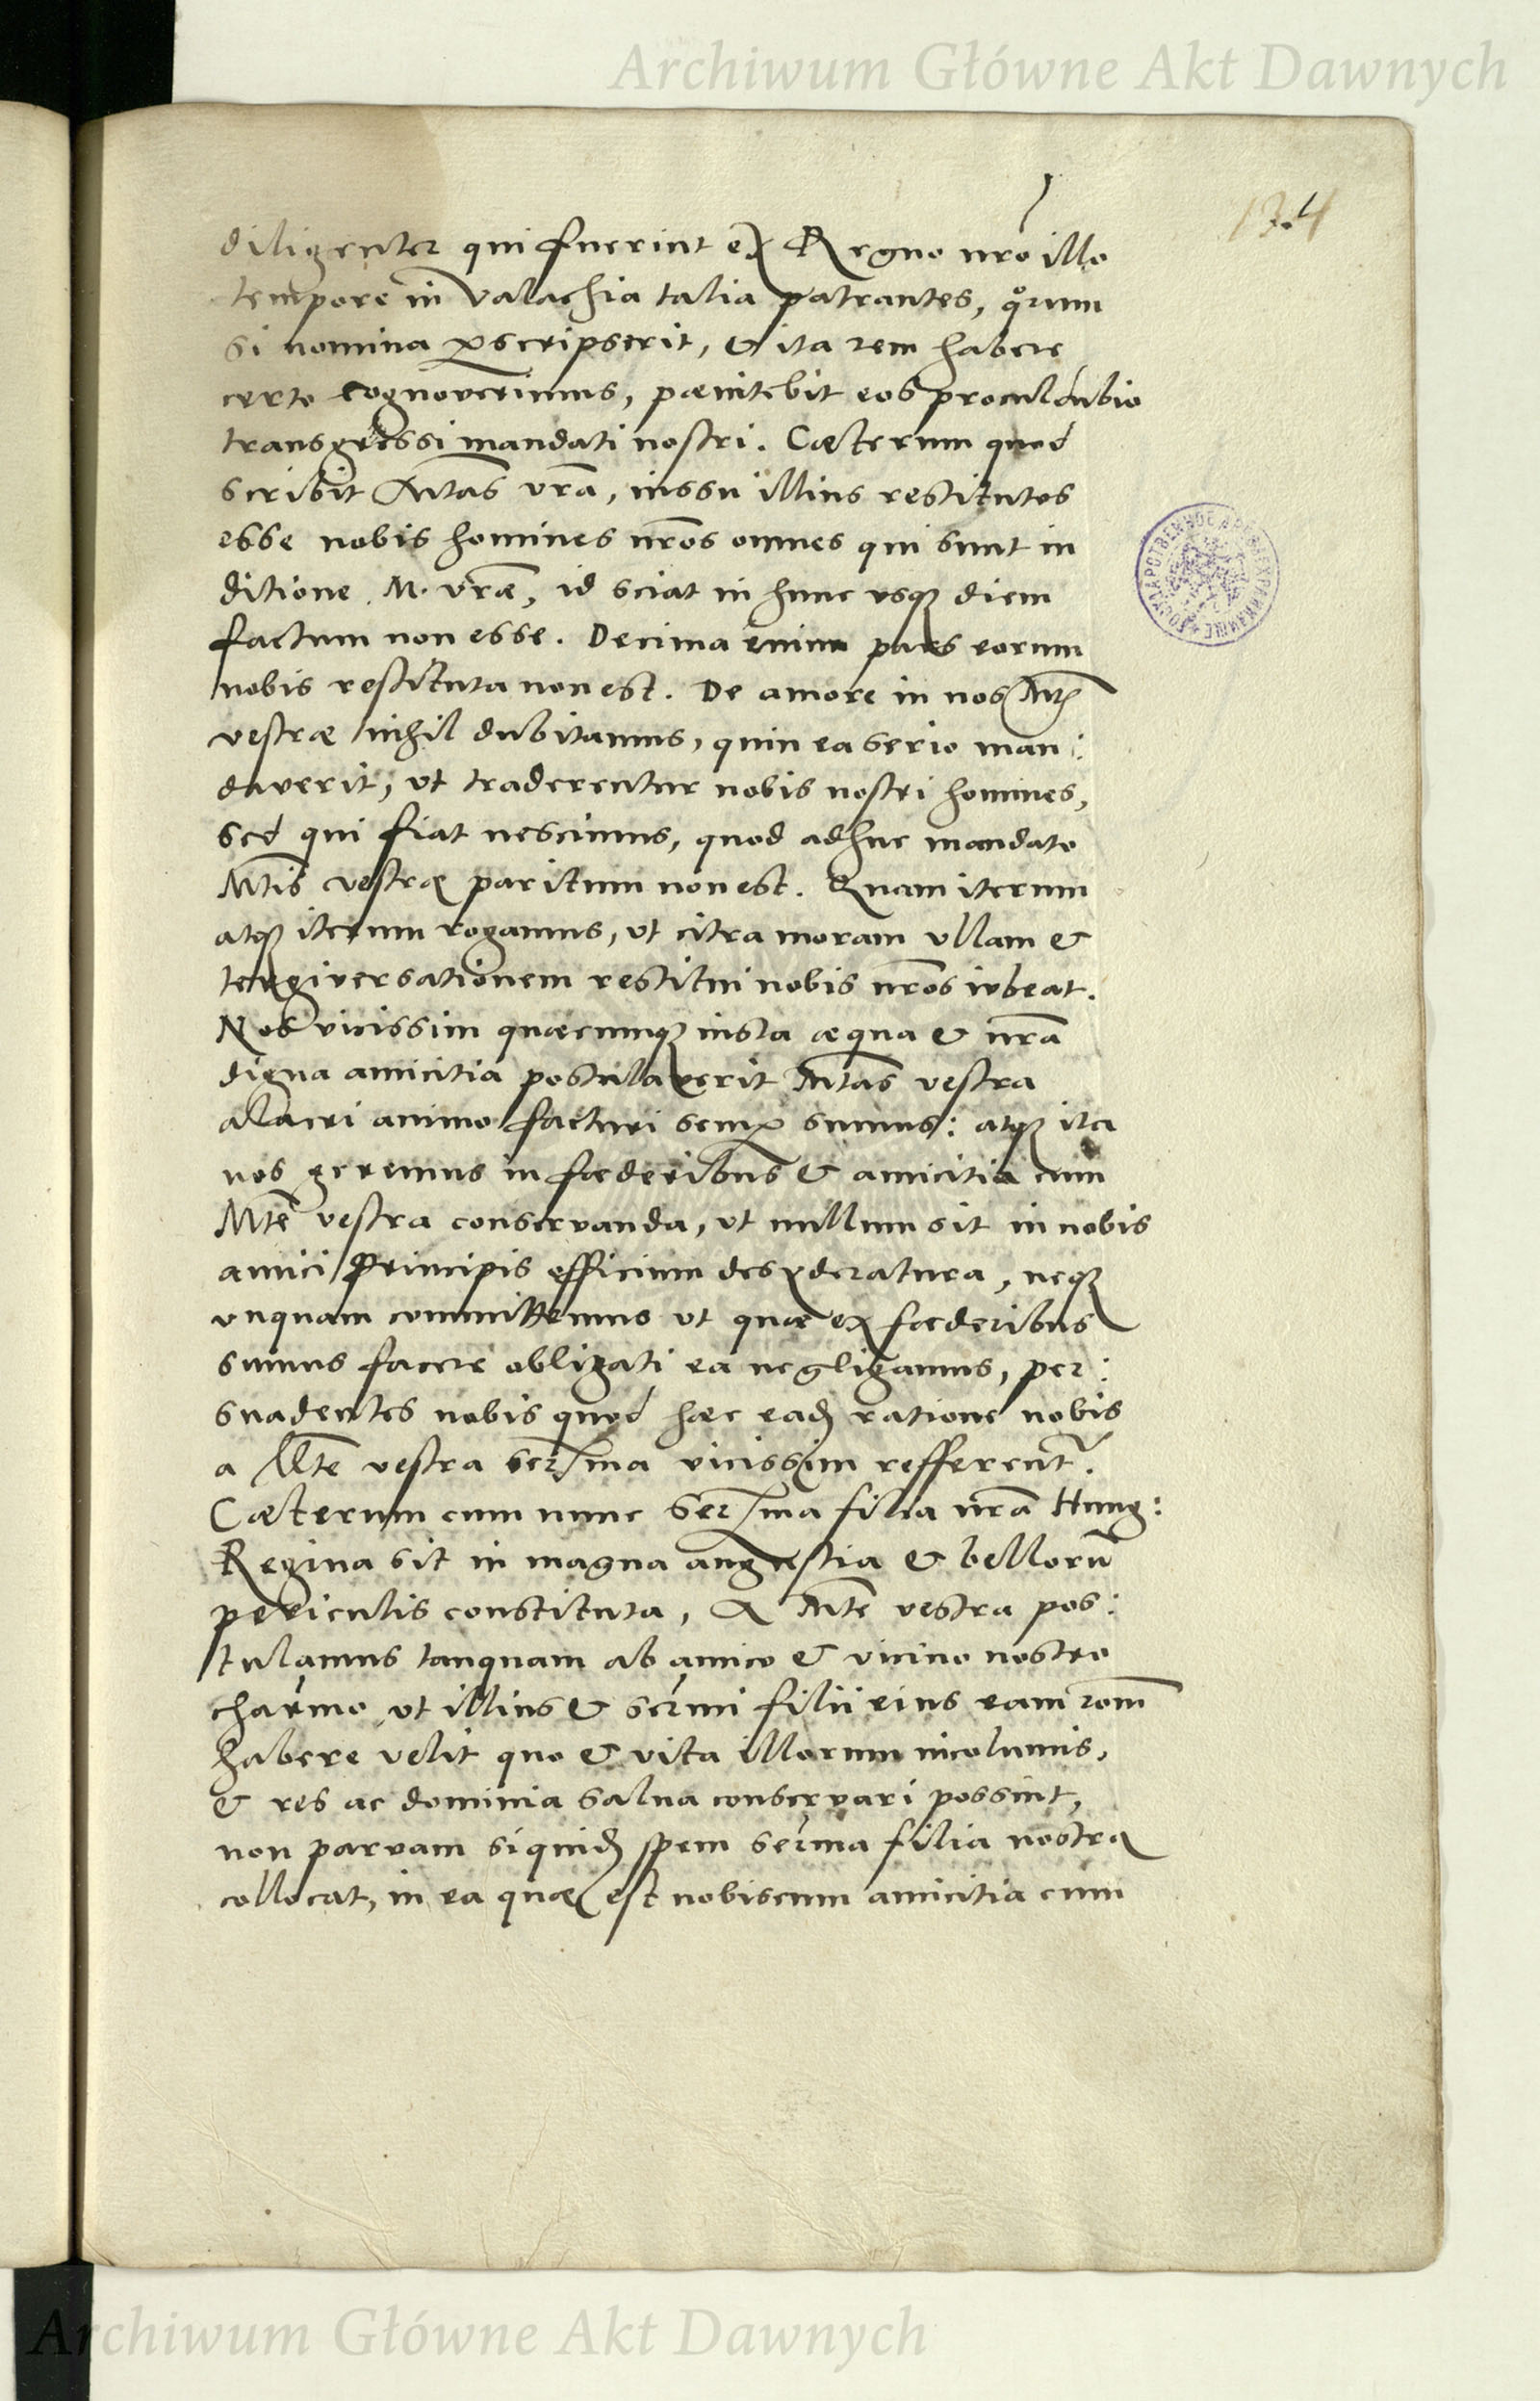 Archiwum Główne Akt Dawnych
134
diligenter qui fuerint ex Regno nrō illo
tempore in Valachia talia patrantes, qͦrum
si nomina ꝑscripserit, & ita rem habere
certo cognoverimus, pænitebit eos proculdubio
transgressi mandati nostri. Cæterum quod
scribit Mtas vrā, iussu illius restitutos
esse nobis homines nrōs omnes qui sunt in
ditione M. vræ, id sciat in hunc usqꝫ diem
factum non esse. Decima enim pars eorum
nobis restituta non est. De amore in nos Mtis
vestræ nihil dubitamus, quin ea serio man:
daverit, ut traderentur nobis nostri homines,
sed qui fiat nescimus, quod adhuc mandato
Mtis vestræ paritum non est. Quam iterum
atqꝫ iterum rogamus, ut citra moram ullam &
tergiversationem restitui nobis nrōs iubeat.
Nos vicissim quæcumqꝫ iusta æqua & nrā
digna amicitia postulaverit Mtas vestra
alacri animo facturi semꝑ sumus: atqꝫ ita
nos geremus in fœderibus & amicitia cum
Mte vestra conservanda, ut nullum sit in nobis
amici Principis officium desyderatura, neqꝫ
unquam committemus ut quæ ex fœderibus
sumus facere obligati ea negligamus, per:
suadentes nobis quod hæc eadē ratione nobis
a Mte vestra serma vicissim refferent̄.
Cæterum cum nunc Serma filia nrā Hung:
Regina sit in magna angustia & bellorū
periculis constituta, A Mte vestra pos:
tulamus tanquam ab amico & vicino nostro
charmo, ut illius & sermi filii eius eam rōm
habere velit quo & vita illorum incolumis,
& res ac dominia salua conservari possint,
non parvam siquidē spem serma filia nostra
collocat, in ea quæ est nobiscum amicitia cum
Archiwum Główne Akt Dawnych